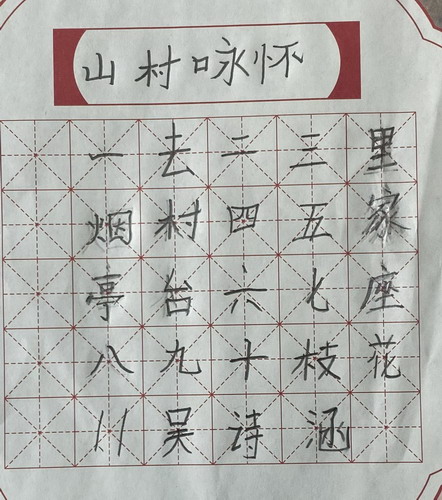 山村咏怀
一去二三里
烟村四五家
亭台六七座
八九十枝花
11 吴诗涵